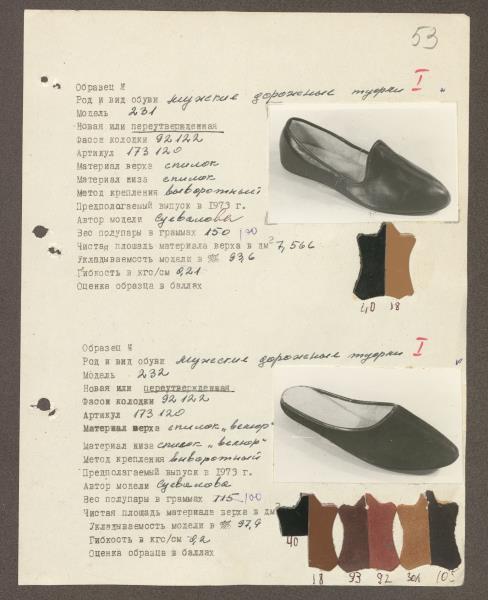 53
Образец №
I
Род и вид обуви мужские дорожные туфли
Модель 231
Новая или переутвержденная
Фасон колодки 92122
Артикул 173120
Материал верха спилок
Материал низа спилок
Метод крепления выворотный
Предполагаемый выпуск в 1973 г.
Автор модели
Вес полупары в граммах 150 100
Чистая площадь материала верха в дм² 7,566
Укладываемость модели в % 93,6
Гибкость в кгс/см 0,21
Оценка образца в баллах
40 18
Образец №
I
Род и вид обуви мужские дорожные туфли
Модель 232
Новая или переутвержденная
Фасон колодки 92122
Артикул 173120
Материал верха спилок „велюр"
Материал низа спилок „велюр"
Метод крепления выворотный
Предполагаемый выпуск в 1973 г.
Автор модели
Вес полупары в граммах 115 100
Чистая площадь материала верха в дм²
Укладываемость модели в % 97,9
Гибкость в кгс/см 0,2
Оценка образца в баллах
40
18 93 92 304 103